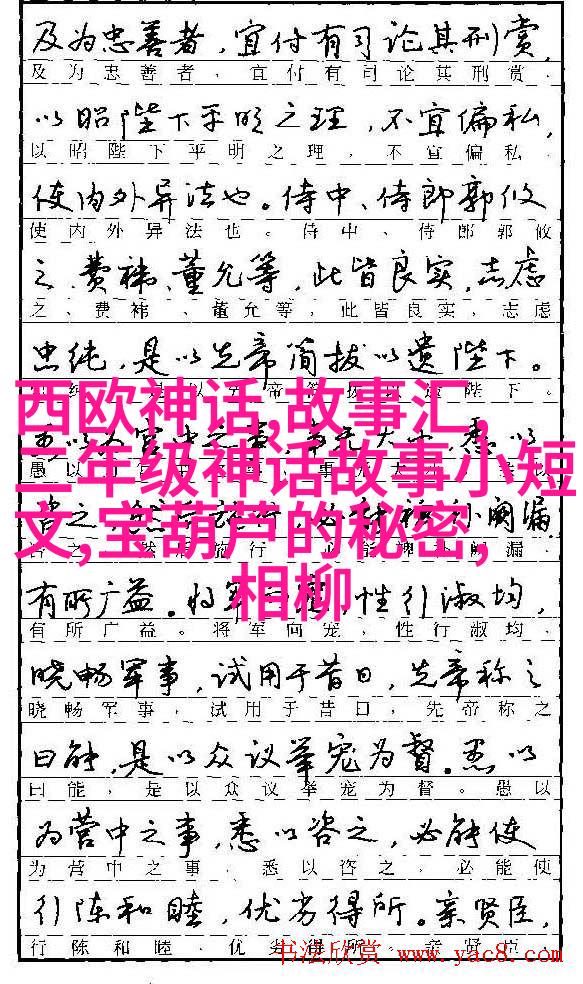 及为忠善者，宜付有司论其刑赏，
及为忠善者，宜付有司论其刑赏，
以昭陛下平明之理，不宜偏私，
以昭陛下平明之理，不宜偏私，
使内外异法也。侍中、侍郎郭攸
使内外异法也。侍中、侍郎郭攸
之、费祎、董允等，此皆良实，志虑
之、费祎、董允等，此皆良实，志虑
忠纯，是以先帝简拔以遗陛下。
是以先帝简拔以遗陛下。
西欧神话,故事汇,
二年级神话故事小短
文,宝葫芦的秘密,
相柳
悉以
愚以
阙漏
有所广益。将军向宠，性行淑均，
有所广益。将军向宠，性行淑均，
晓畅军事，试用于昔日，先帝称之
晓畅军事，试用于昔日，先帝称之
曰能，是以众议举宠为督。愚以
曰能，是以众议举宠为督。愚以
为营中之事，悉以咨之，必能使
为营中之事，悉以咨之，必能使
行阵和睦，优劣得所。亲贤臣，
行陈和睦，优劣得所。亲贤臣，
书法欣赏 www.yac8.com